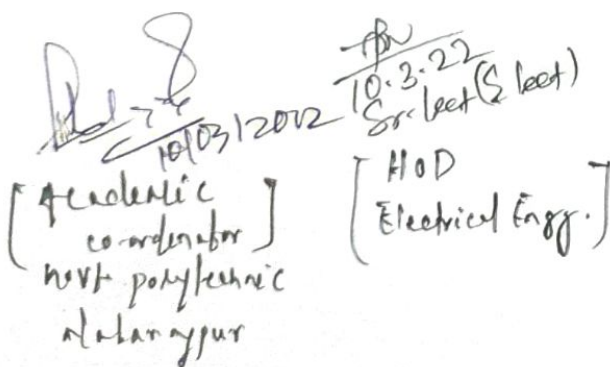 10/03/2022
[Academic
co-ordenator]
Govt polytechnic
10.3.22
Sr. lect (S lect)
[HOD
Electrical Engg.]